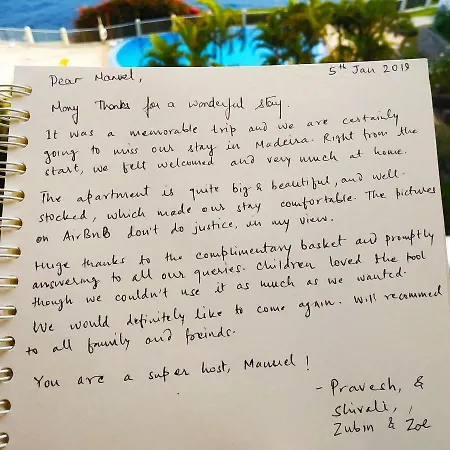 5th Jan 2019
Dear Manuel,
Many Thanks for a wonderful stay.
It was a memorable trip and we are certainly
going to miss our stay in Madeira. Right from the
start, we felt welcomed and very much at home.
The apartment is quite big & beautiful, and well-
stocked, which made our stay comfortable. The pictures
on AirBnB don't do justice, in my view.
Huge thanks to the complimentary basket and promptly
answering to all our queries. Children loved the pool
though we couldn't use it as much as we wanted.
We would definitely like to come again. Will recommed
to all family and freinds.
You are a super host, Manuel!
- Pravesh, &
Shivali,,
Zubin & Zoe